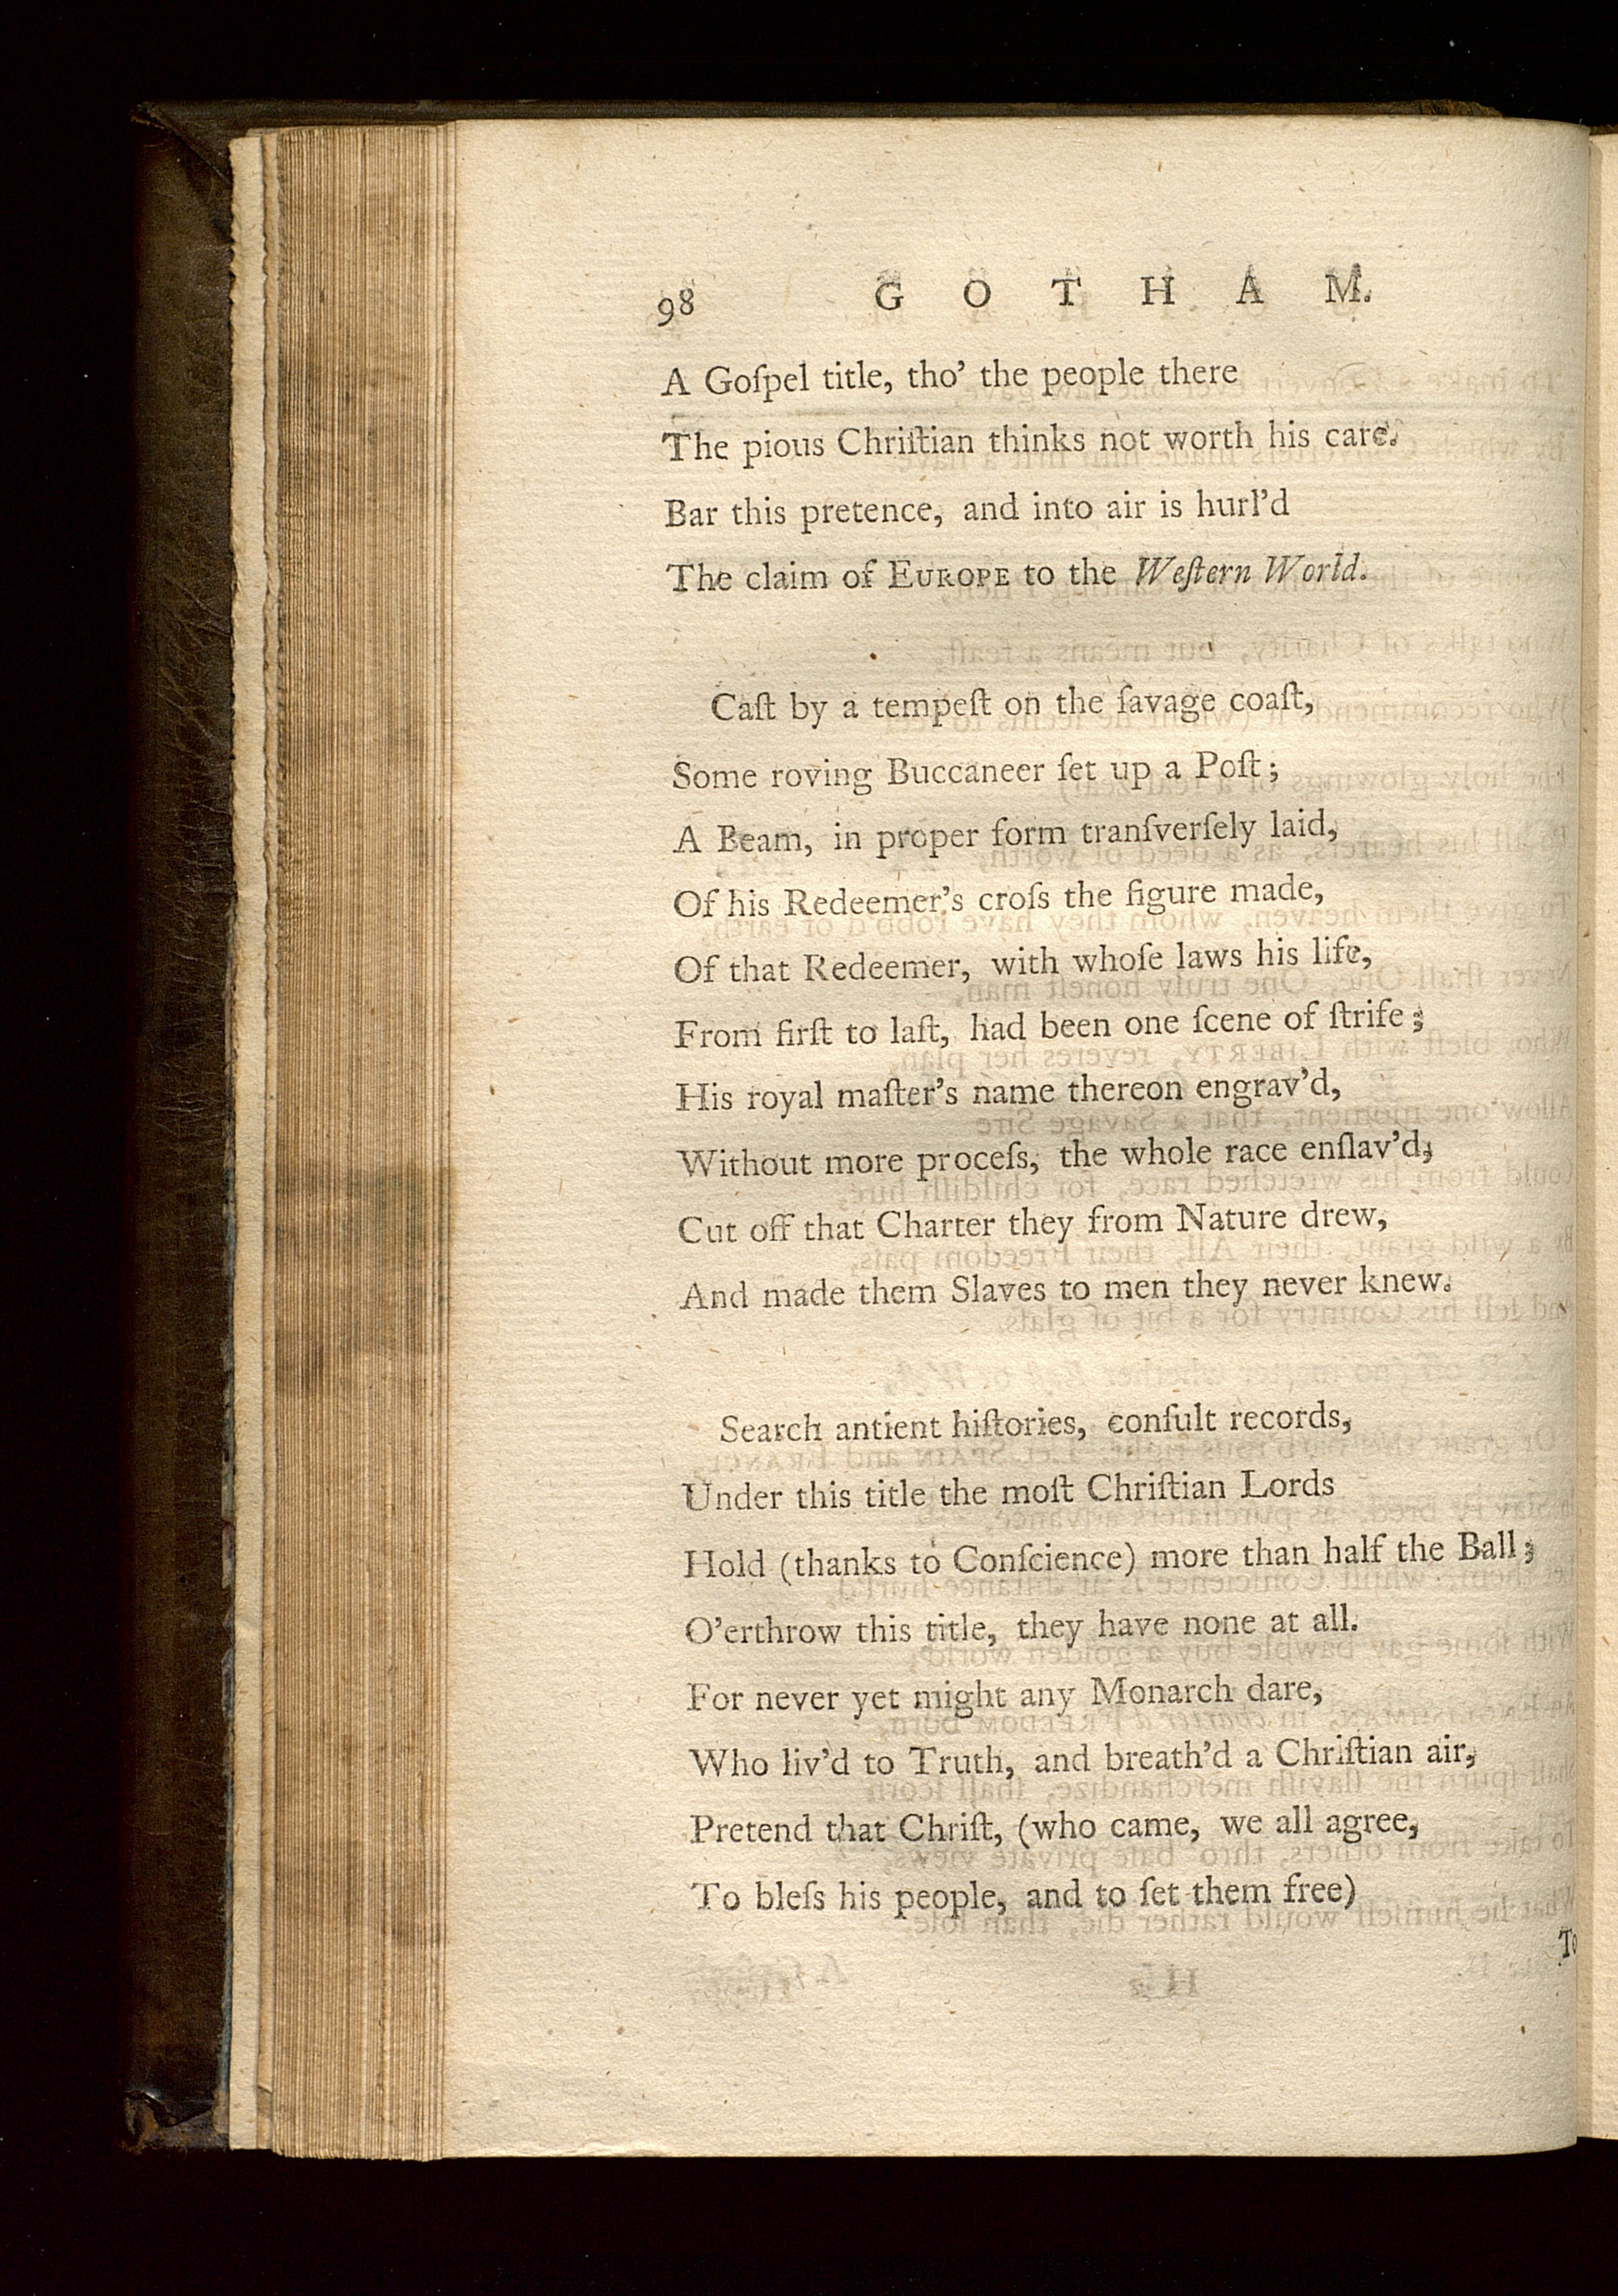 98 GOTHAM.
A Goſpel title, tho' the people there
The pious Chriſtian thinks not worth his care.
Bar this pretence, and into air is hurl'd
The claim of EUROPE to the Weſtern World.
Caſt by a tempeſt on the ſavage coaſt,
Some roving Buccaneer ſet up a Poſt;
A Beam, in proper form tranſverſely laid,
Of his Redeemer's croſs the figure made,
Of that Redeemer, with whoſe laws his life,
From firſt to laſt, had been one ſcene of ſtrife;
His royal maſter's name thereon engrav'd,
Without more proceſs, the whole race enſlav'd,
Cut off that Charter they from Nature drew,
And made them Slaves to men they never knew.
Search antient hiſtories, conſult records,
Under this title the moſt Chriſtian Lords
Hold (thanks to Conſcience) more than half the Ball;
O'erthrow this title, they have none at all.
For never yet might any Monarch dare,
Who liv'd to Truth, and breath'd a Chriſtian air,
Pretend that Chriſt, (who came, we all agree,
To bleſs his people, and to ſet them free)
To